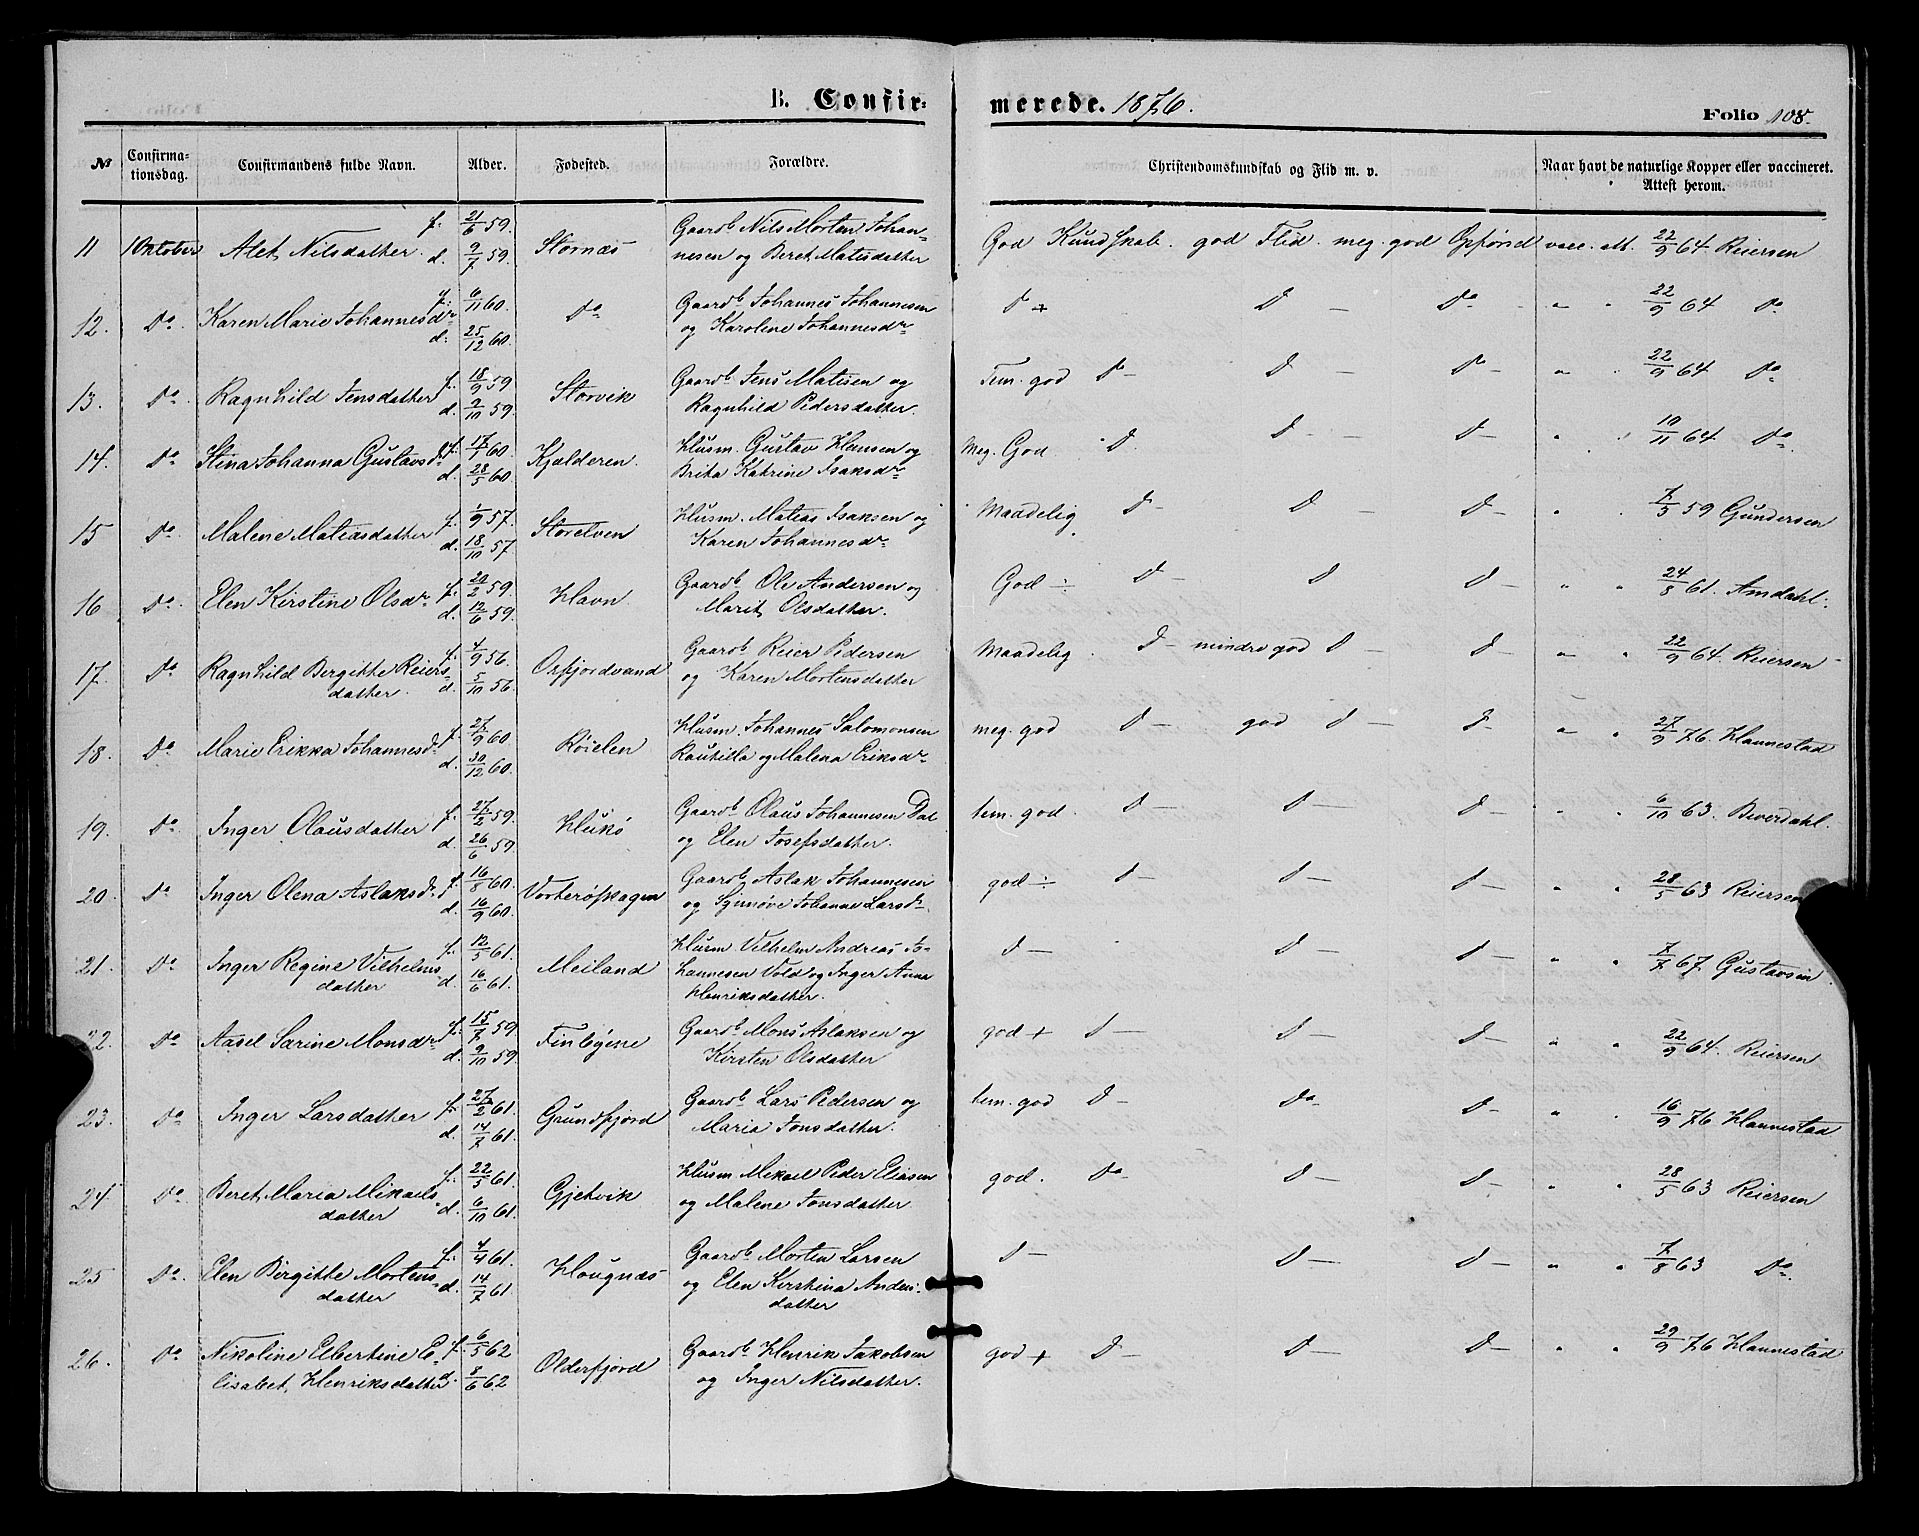 B. Confir-merede. 1876.
Folio 108.
№ Confirmationsdag. Confirmandens fulde Navn. Alder. Fødested. Forældre. Christendomskundskab og Flid m. v. Naar havt de naturlige Kopper eller vaccineret. Attest herom.
11 1 Oktober Alet Nilsdatter. f. 21/6 59. d. 9/7 59. Stornæs Gaardb Nils Morten Johannesen og Beret Matisdatter God Kundskab. god Flid. meg. god Opførsel vacc. att. 22/9 64 Reiersen
12. Do. Karen Marie Johannesdr f. 6/11 60. d. 25/12 60. Do Gaardb Johannes Johannesen og Karolene Johannesdr D + D — Do - " " 22/9 64 Do.
13. Do. Ragnhild Jensdatter f. 18/9 59 d. 9/10 59. Storvik Gaardb Jens Matisen og Ragnhild Pedersdatter. Tem. god D — D — D — " " 22/9 64 Do
14. Do Stina Johanna Gustavsdr f. 17/1 60. d. 28/5 60 Kjelderen. Husm. Gustav Hansen og Brita Katrine Isaksdr Meg. God D. D — D — " " 10/11 64 Do.
15 Do. Malene Matiasdatter f. 1/9 57. d. 18/10 57 Storelven Husm. Matias Isaksen og Karen Johannesdr Maadelig D — D — D — " " 7/5 59 Gundersen
16 Do. Elen Kirstine Olsdr f. 20/2 59. d. 12/6 59. Havn. Gaardb Ole Andersen og Marit Olsdatter. God ÷ D — D D — " " 24/8 61. Amdahl.
17. Do Ragnhild Bergitte Reiersdatter. f. 4/9 56. d. 5/10 56. Oxfjordvand Gaardb Reier Pedersen og Karen Mortensdatter Maadelig. D — mindre god D — D — " " 22/9 64. Reiersen
18. Do. Marie Erikka Johannesdr f. 27/9 60 d. 30/12 60. Røielen Husm. Johannes Salomonsen Rautilla og Malena Eriksdr meg. god D — god D — D — " " 27/9 76 Hannestad
19. Do. Inger Olausdatter f. 27/2 59. d. 26/6 59. Hukø Gaardb Olaus Johannesen Dal og Elen Josefsdatter. tem. god. D — D — D — " " 6/10 63. Beverdahl.
20. Do Inger Olena Aslaksdr f. 16/8 60. d. 16/9 60. Vorterøskagen Gaardb Aslak Johannesen og Synnøve Johanne Larsdr god ÷ D — D — D — " " 28/5 63 Reiersen
21. Do. Inger Regine Vilhelmsdatter f. 12/5 61. d. 16/6 61. Meiland Husm Vilhelm Andreas Johannesen Vold og Inger Anna Henriksdatter. D — D — D — " " 7/7 67. Gustavsen
22. Do. Aasel Sarine Monsdr f. 15/7 59 d. 9/10 59. Gaardb Mons Aslaksen og Kirsten Olsdatter god + D — D — D — " " 22/9 64. Reiersen
23. Do. Inger Larsdatter f. 27/2 61. d. 14/7 61. Grundfjord Gaardb Lars Pedersen og Maria Jonsdatter. tem. god D — Do D — " " 16/9 76 Hannestad
24. Do Beret Maria Mikaelsdatter f. 22/5 61. d. 6/10 61. Gjetvik Husm Mikael Peder Eliasen og Malene Jonsdatter. god. Do D — D — " " 28/5 63 Reiersen
25 Do. Elen Birgitte Mortensdatter f. 4/4 61. d. 14/7 61 Hougnæs Gaardb Morten Larsen og Elen Kirstina Andersdatter D — D — D — " " 7/8 63 Do.
26. Do Nikoline Elbertine Elisabet Henriksdatter f. 6/5 62 d. 8/6 62 Olderfjord Gaardb Henrik Jakobsen og Inger Nilsdatter. god + D — D — D — " " 29/9 76 Hannestad